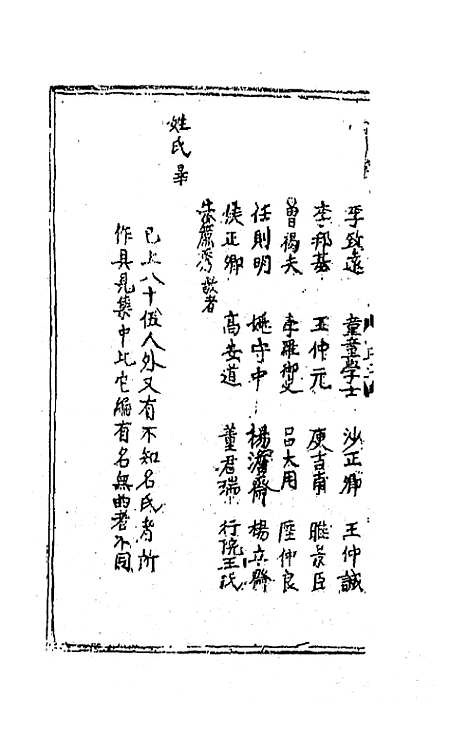 李致遠　童童學士　沙正卿　王仲誠
李邦基　王仲元　庾吉甫　睢玄臣
曾褐夫　李羅御史　呂大用　陸仲良
任則明　姚守中　楊澹齋　楊立齋
侯正卿　高安道　董君瑞　行院王氏
朱簾秀歌者
姓氏畢
已上八十伍人外又有不知名氏者所
作具見集中比它編有名無曲者不同